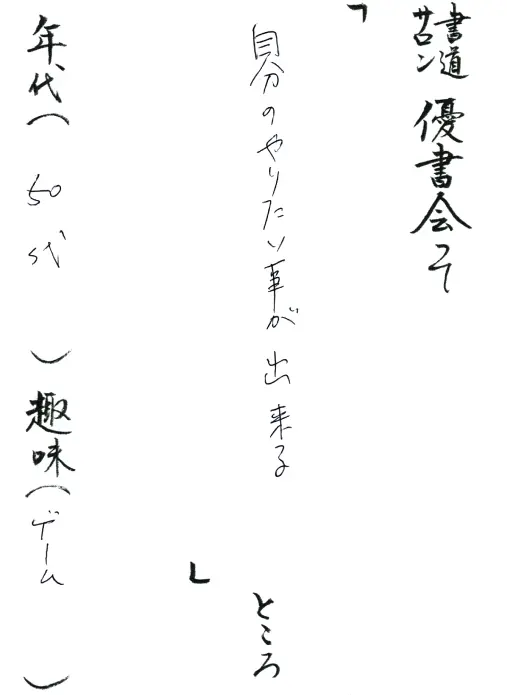 書道サロン 優書会って
「自分のやりたい事が出来る」ところ
年代（50代）趣味（ゲーム）